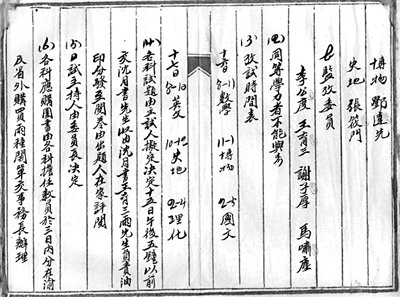 博物 鄧遠先
史地 張筱門
監攷委員
李公度 王育三 謝子厚 馬嘯塵
同等學力者不能與考
攷試時間表
十六日 8-11 數學 11-1 博物 2-5 國文
十七日 8-10 英文 10-12 史地 2-4 理化
各科試題由主試人擬定決定十五日午後五鐘以前
交沈月書先生收由沈月書王育三兩先生負責油
印分發至閱卷由出題人在家評閱
(5)口試主持人由委員長決定
(6)各科應購圖書由各科擔任教員於三日內分在渝
及省外購買兩種開單交事務長辦理